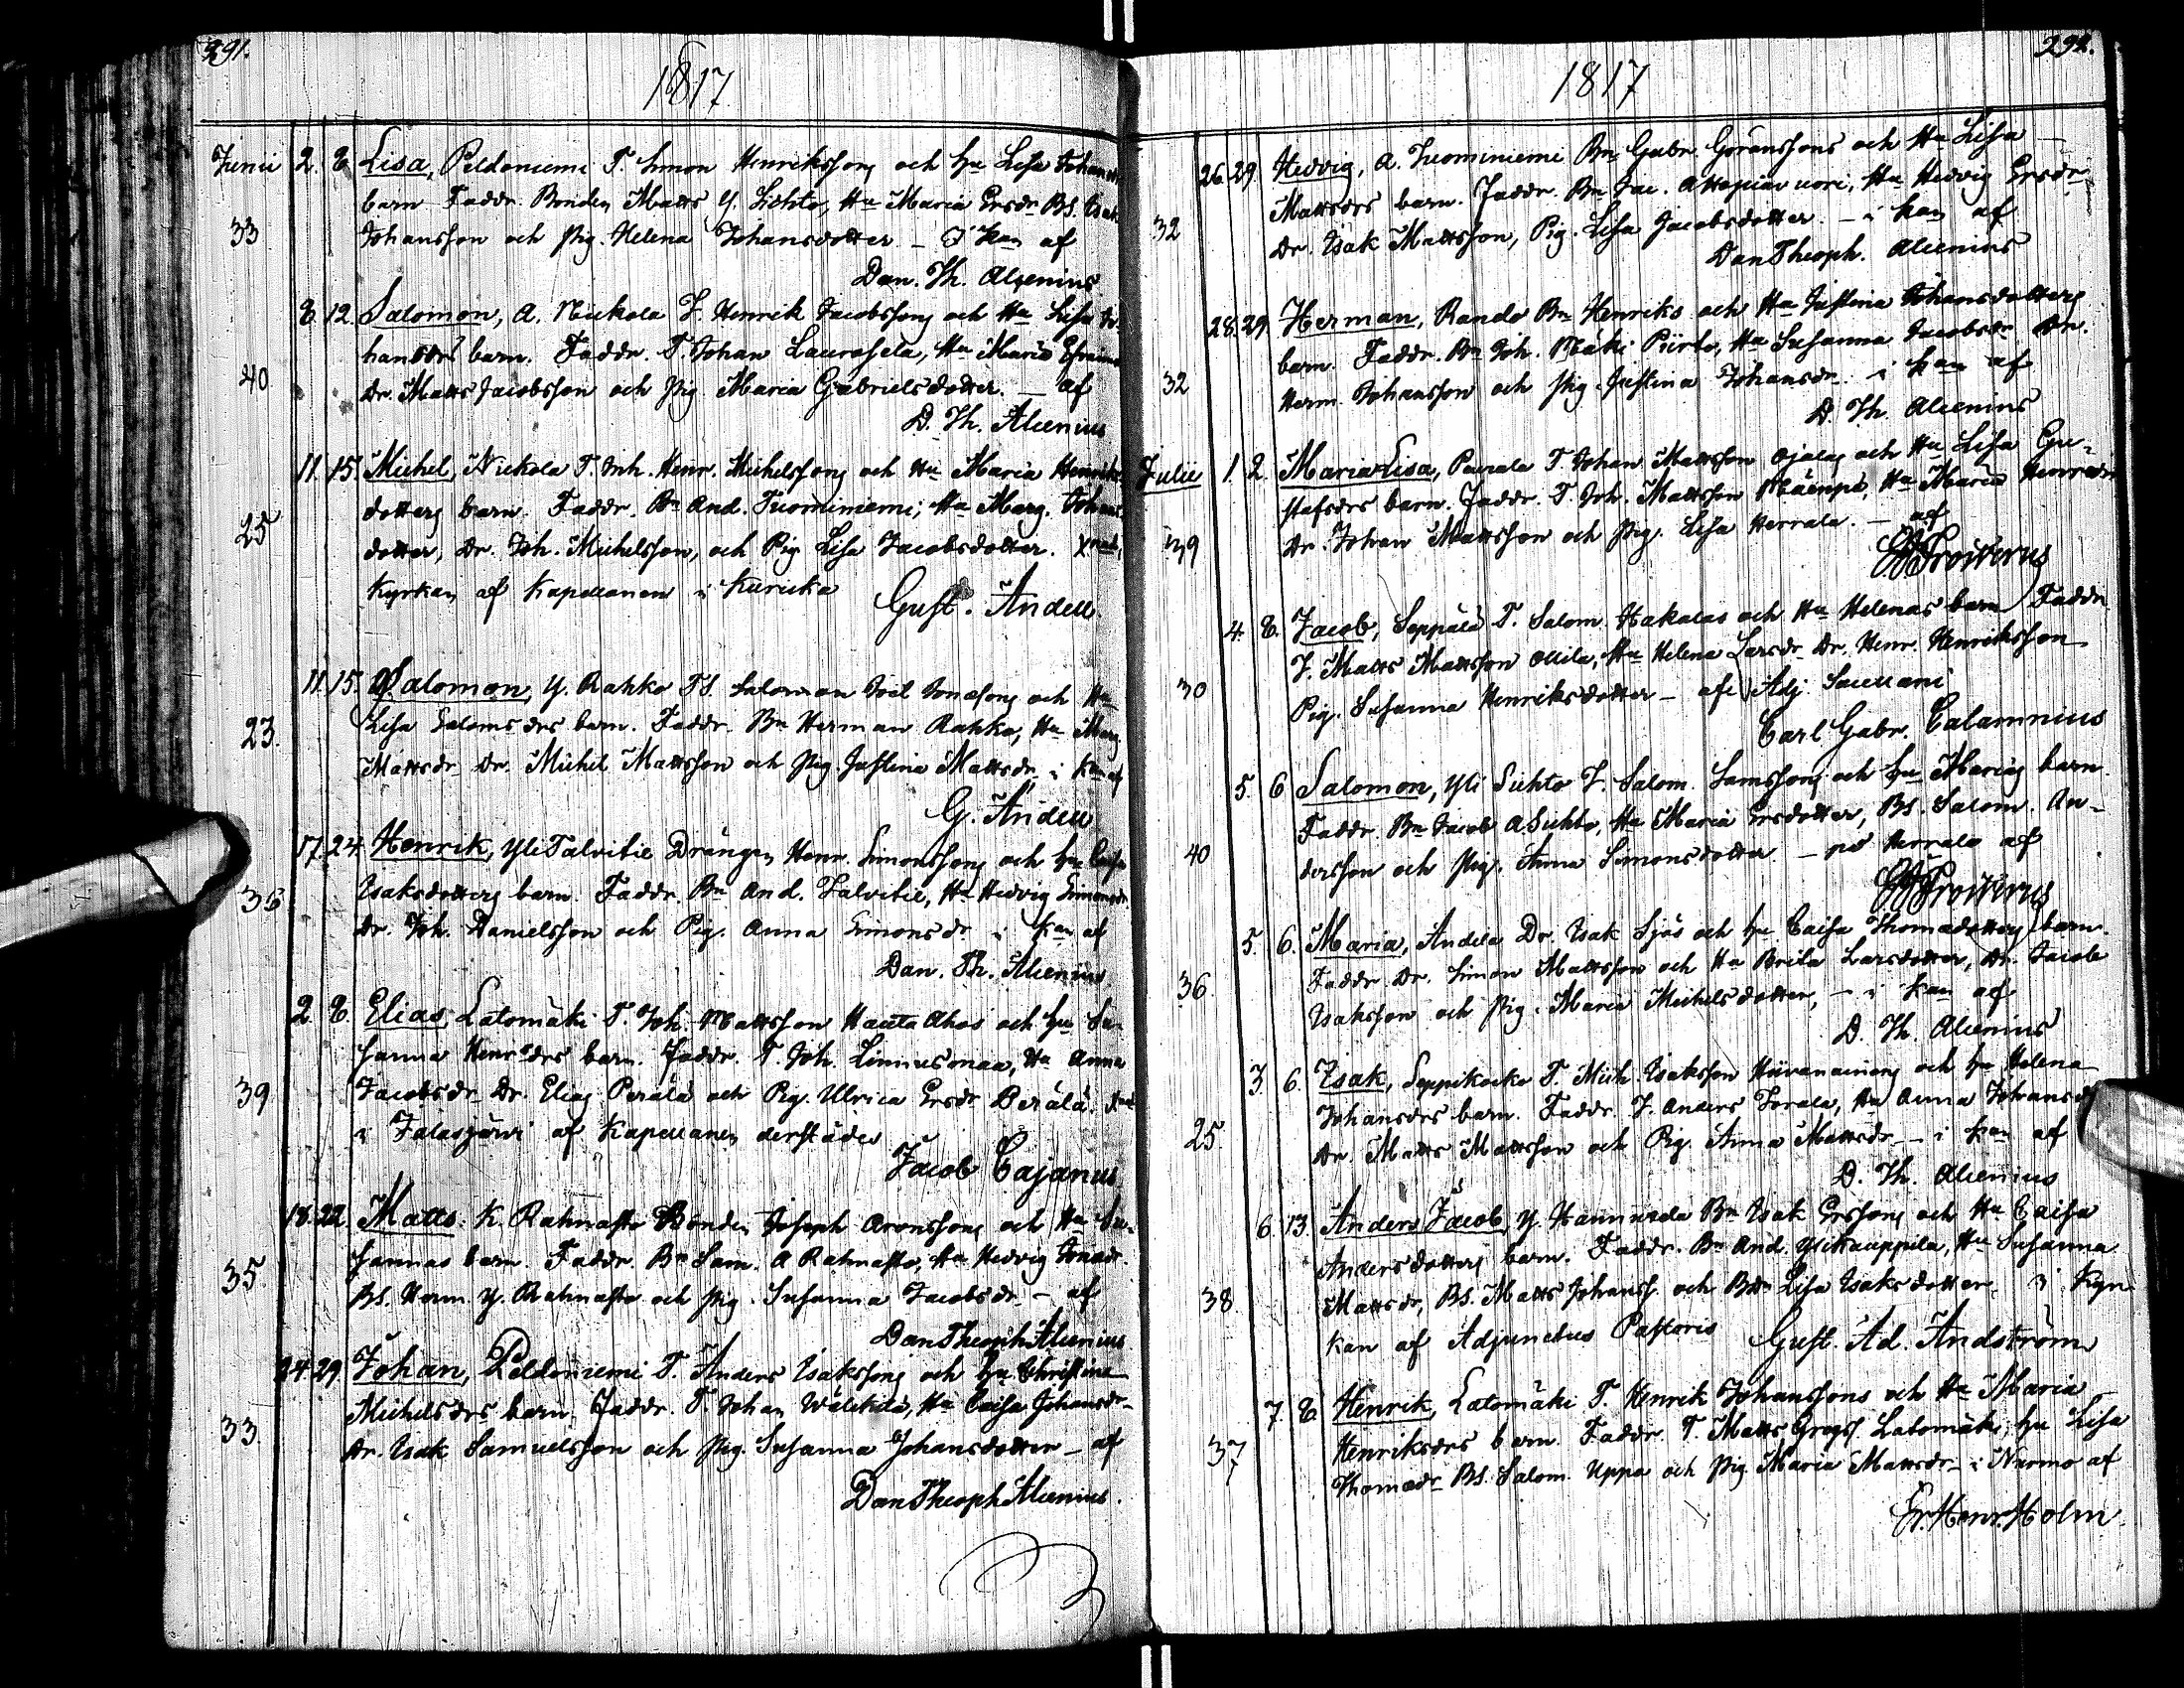 291.
1817
Junii 2. 8. Lisa, Peldoniemi T. Simon Henrikssons och Hu Lisa Johansd
barn Faddr. Bonden Matts Y. Lichto, Hu Maria Ersdr BS. Isak
33 Johansson och Pig. Helena Johansdotter – I kan af
Dan. Th. Alcenius
8. 12. Salomon, A. Nickola T. Henrik Jacobssons och Hu Lisa Jo-
hansdrs barn. Faddr. T. Johan Laurosela, Hu Maria Efraims
40 Dr. Matts Jacobsson och Pig. Maria Gabrielsdotter. – af
D. Th. Alcenius
11. 15. Michel, Nickola T. Inh. Henr. Michelssons och Hu Maria Henriks
dotters barn. Faddr. Bn And. Tuominiemi, Hu Marg. Johans
25 dotter, Dr. Joh. Michelsson, och Pig. Lisa Jacobsdotter.
Kyrkan af Kapellanen i Kuricka
Gust. Andell.
11. 15. Salomon, Y. Rahko TS. Salomon Joel Jonæsons och Hu
Lisa Saloms drs barn. Faddr. Bn Herman Rahko, Hu Marg.
23. Mattsdr Dr. Michel Mattsson och Pig. Justina Mattsdr i kan af
G. Andell
17. 24. Henrik, Yli Talvitie Drängen Henr. Simonssons och Hu Caisa
Isaksdotters barn. Faddr. Bn And. Talvitie, Hu Hedvig Simonsdr
36 Dr. Joh. Danielsson och Pig. Anna Simonsdr i kan af
Dan. Th. Alcenius
2. 8. Elias Latomäki T. Joh. Mattsson Hauta Ahos och Hu Su-
sanna Henrsdrs barn. Faddr. T. Joh. Linnusmaa, Hu Anna
39 Jacobsdr Dr. Elias Perälä och Pig. Ulrica Ersdr Perälä.
i Jalasjärvi af Kapellanen derstädes
Jacob Cajanus
18. 22. Matts K. Rahnasto Bonden Joseph Aronssons och Hu Su-
sannas barn. Faddr. Bn Sam. A Rahnasto, Hu Hedvig Jonædr.
35 BS. Herm. Y. Rahnasto och Pig. Susanna Jacobsdr – af
Dan Theoph Alcenius
24. 29. Johan, Peldoniemi T. Anders Isakssons och Hu Christina
Michelsdrs barn. Faddr. T. Johan Wälikilä, Hu Caisa Johansdr
33. Dr. Isak Samuelsson och Pig. Susanna Johansdotter – af
Dan Theoph Alcenius.
292.
1817
26. 29. Hedvig, A. Tuominiemi Bn Gabr. Göranssons och Hu Lisa
Mattsdrs barn. Faddr. Bn Jac. Attapiavuori, Hu Hedvig Ersdr
32 Dr. Isak Mattsson, Pig. Lisa Jacobsdotter. – i kan af
Dan Theoph. Alcenius
28. 29. Herman, Rando Bn Henriks och Hu Justina Johansdotters
barn. Faddr. Bn Joh. Mäki Piirto, Hu Susanna Jacobsdr Dr.
32 Herm. Johansson och Pig. Justina Johansdr. i kan af
D. Th. Alcenius
Julii 1. 2. Maria Lisa, Paurala T Johan Mattsson Ojalas och Hu Lisa Gu-
stafsdrs barn. Faddr. T. Joh. Mattsson Mäenpä, Hu Maria Henrsdr
39 Dr. Johan Mattsson och Pig. Lisa Herrala. – af

4. 8. Jacob, Seppälä T. Salom. Hakalas och Hu Helenas barn Faddr
T. Matts Mattsson Ollila, Hu Helena Larsdr Dr. Henr. Henriksson
30 Pig. Susanna Henriksdotter – af Adj. Sacellani
Carl Gabr. Calamnius
5. 6 Salomon, Yli Sichto T. Salom. Samssons och Hu Marias barn.
Faddr. Bn Jacob A Sichto, Hu Maria Ersdotter, BS. Salom. An-
40 dersson och Pig. Anna Simonsdotter – på Herrala af

5. 6. Maria, Andela Dr. Isak Sjös och Hu Caisa Thomædotters barn.
Faddr. Dr. Simon Mattsson och Hu Breita Larsdotter, Dr. Jacob
36. Isaksson och Pig. Maria Michelsdotter, – i kan af
D. Th. Alcenius
3. 6. Isak, Seppikoko T. Mich. Isaksson Hiivanainens och Hu Helena
Johansdrs barn. Faddr. T. Anders Torala, Hu Anna Johansdr
25. Dr. Matts Mattsson och Pig. Anna Mattsdr – i kan af
D. Th. Alcenius
6. 13. Anders Jacob Y. Hannuxela Bn Isak Erssons och Hu Caisa
Andersdotters barn. Faddr. Bn And. Ylikauppila, Hu Susanna
38. Mattsdr, BS. Matts Johanss. och BDr Lisa Isaksdotter, i Kyr-
kan af Adjunctus Pastoris Gust. Ad. Andström
7. 8. Henrik, Latomäki T. Henrik Johanssons och Hu Maria
Henriksdrs barn. Faddr. T. Matts Gregs. Latomäki, Hu Lisa
37 Thomædr BS. Salom. Uppa och Pig Maria Mattsdr i Nurmo af
Er. Henr. Holm